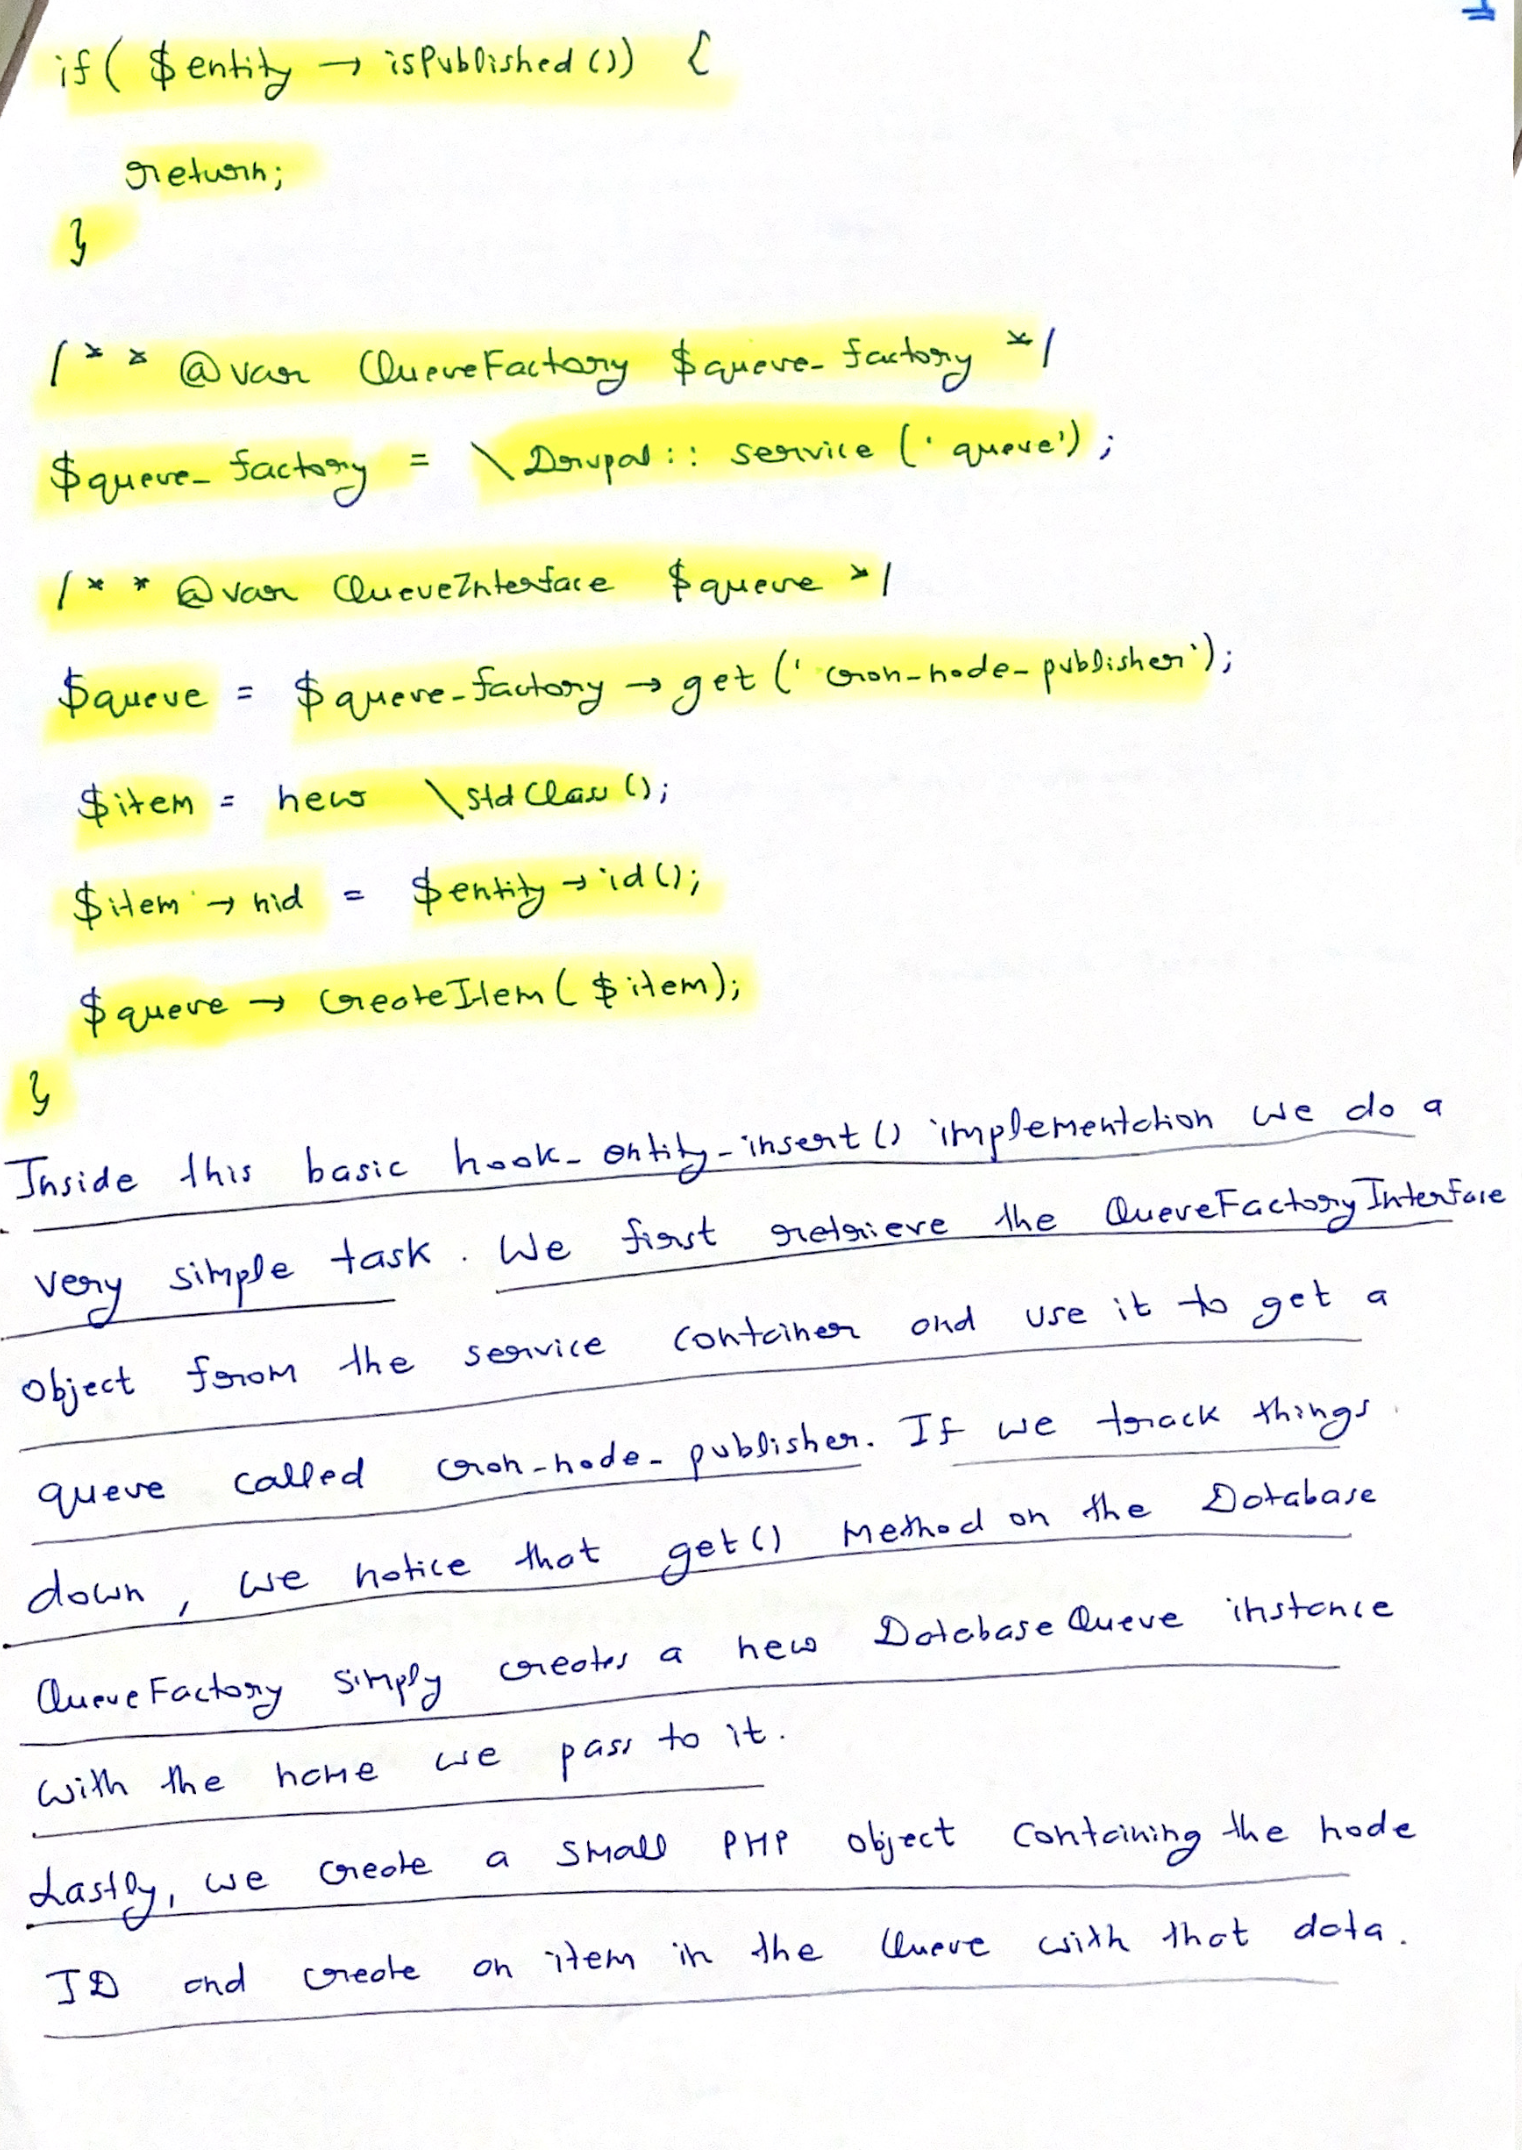 if( $entity → isPublished()) {
return;
}
/** @var QueueFactory $queue_factory */
$queue_factory = \Drupal:: service ('queue');
/** @var QueueInterface $queue */
$queue = $queue_factory → get ('cron_node_publisher');
$item = new \stdClass();
$item → nid = $entity → id();
$queue → createItem ( $item);
}
Inside this basic hook_entity_insert() implementation we do a
very simple task. We first retrieve the QueueFactoryInterface
object from the service container and use it to get a
queue called cron_node_publisher. If we track things
down, we notice that get() method on the Database
QueueFactory simply creates a new DatabaseQueue instance
with the name we pass to it.
Lastly, we create a small PHP object containing the node
ID and create an item in the Queue with that data.